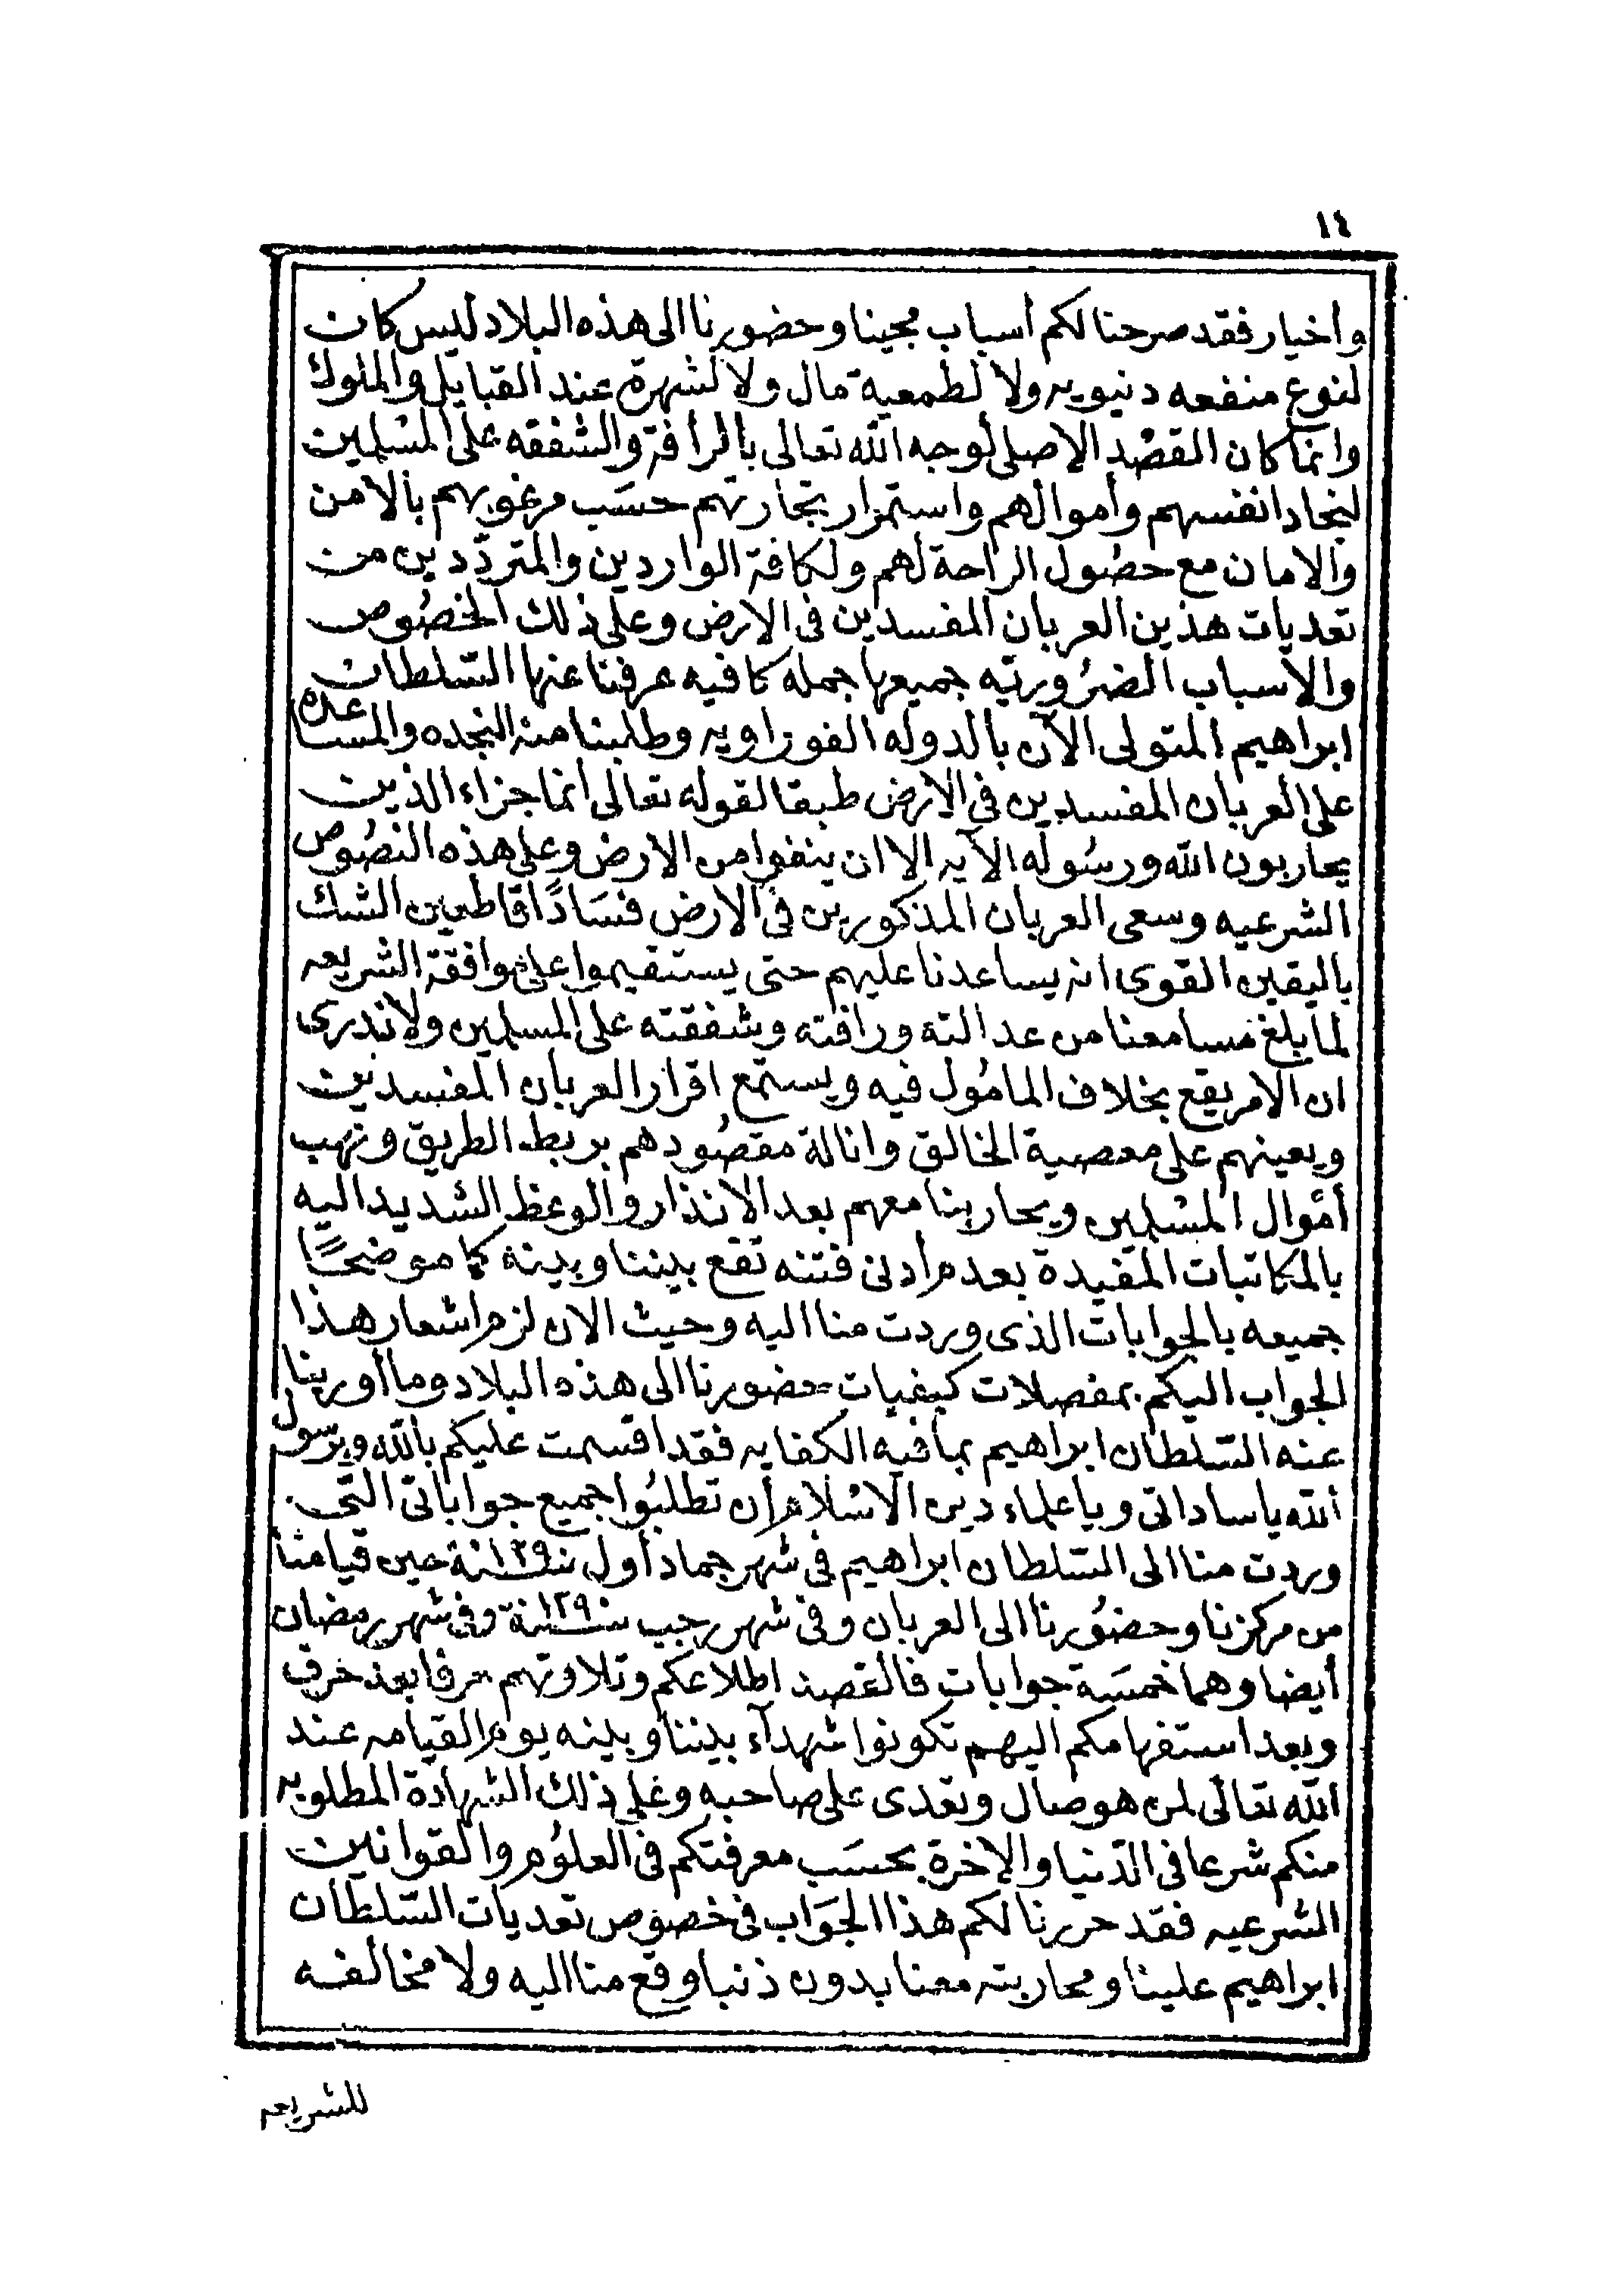 ١٤
وأخيار فقد صرحنا لكم أسباب مجينا وحضورنا الى هذه البلاد ليس كان
لنوع منفعه دنيويه ولا لطمعية مال ولا لشهرة عند القبايل والملوك
وانما كان القصد الاصلى لوجه الله تعالى بالرأفة والشفقه على المسلمين
لنجاد انفسهم وأموالهم واستمرار تجارتهم حسب مرغوبهم بالامن
والامان مع حصول الراحة لهم ولكافة الواردين والمتردّدين من
تعديات هذين العربان المفسدين فى الارض وعلى ذلك الخصُوص
والاسباب الضرُوريّه جميعها جمله كافيه عرفنا عنها السّلطان
ابراهيم المتولى الآن بالدوله الفوراويه وطلبنا منه النجده والمساعده
على العربان المفسدين فى الارض طبقا لقوله تعالى أنما جزاء الذين
يحاربون الله ورسُوله الآيه الا ان ينفوا من الارض وعلى هذه النصُوص
الشرعيه وسعى العربان المذكورين فى الارض فسَادًا قاطعين الشك
باليقين القوى انه يساعدنا عليهم حتى يستقيموا على موافقة الشريعه
لما يلغ مسامعنا من عدالته ورافته وشفقته على المسلمين ولا ندرى
ان الامر يقع بخلاف المامُول فيه ويستمع اقرار العربان المفسدين
ويعينهم على معصية الخالق وانالة مقصُودهم بربط الطريق ونهب
أمْوال المسْلمين ويحاربنا معهم بعد الانذار والوعظ الشديد اليه
بالمكاتبات المفيدة بعدم أدنى فتنه تقع بيننا وبينه كما موضحًا
جميعه بالجوابات الذى وردت منا اليه وحيث الان لزم اشعار هذا
الجواب اليكم بمفصلات كيفيات حضورنا الى هذه البلاد وما أورينا
عنه السّلطان ابراهيم بما فيه الكفايه فقد اقسمت عليكم بالله وبرسول
الله ياساداتى وياعلماء دين الاسْلام أن تطلبُوا جميع جواباتى التّى
وردت منا الى السّلطان ابراهيم فى شهر جماد أول سنة ١٢٩٠ حين قيامنا
من مركزنا وحضُورنا الى العربان وفى شهر رجب سنة ١٢٩٠ وفى شهر رمضان
أيضا وهما خمسَة جوابات فالقصد اطلاعكم وتلاوتهم حرفا بعد حرف
وبعد استفهامكم اليهم تكونوا شهدآء بيننا وبينه يوم القيامه عند
الله تعالى لمن هو صال وتعدى على صاحبه وعلى ذلك الشهادة المطلوبه
منكم شرعا فى الدّنيا والاخرة بحسَب معرفتكم فى العلوُم والقوانين
الشرعيه فقد حررنا لكم هذا الجوَاب فى خصوص تعديات السّلطان
ابراهيم علينا ومحاربته معنا بدون ذنبا وقع منا اليه ولا مخالفه
للشريعه